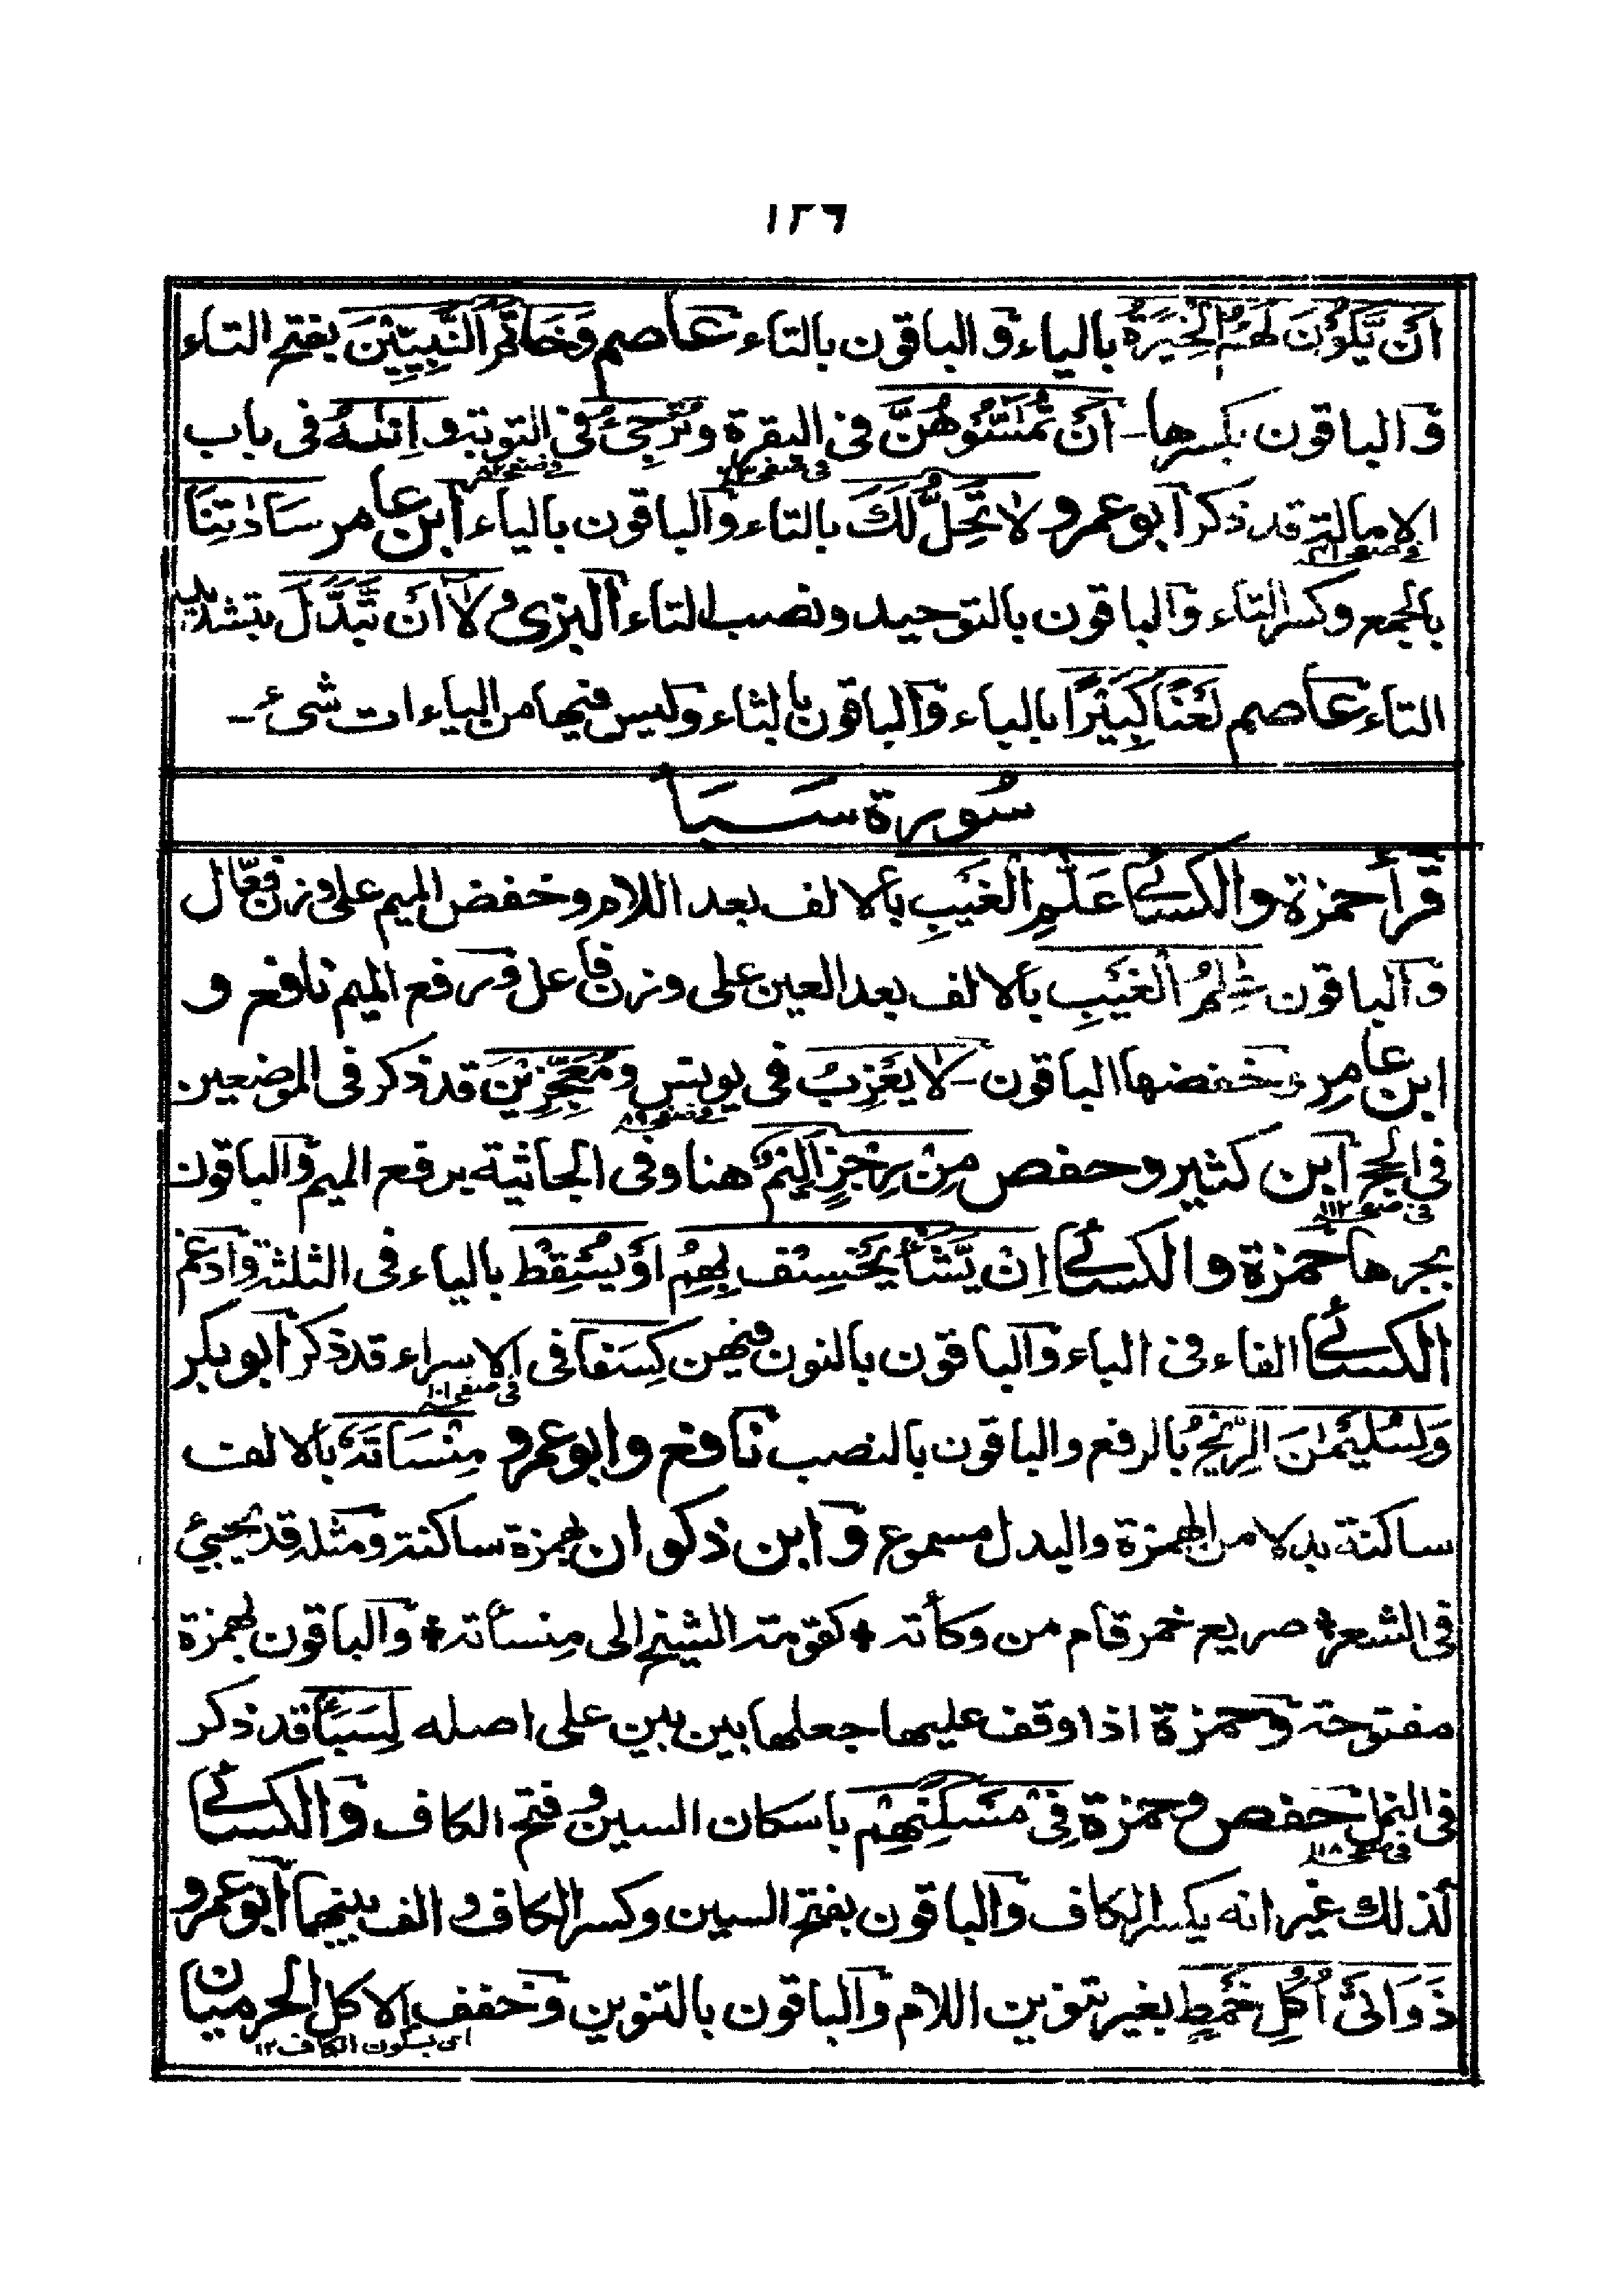 ١٢٦
اَنْ يَّكُوْنَ لَهُمُ الْخِيَرَةُ بالياء والباقون بالتاء عاصم وَخَاتَمَ النَّبِيّٖنَ بفتح التاء
والباقون بكسرها ـ اَنْ تَمَسُّوْهُنَّ فى البقرة وتُرْجِىْ فى التوبة و اِنٰىهُ فى باب
فى صفحہ
الامالة قد ذكر ابو عمرو لَا تَحِلُّ لَكَ بالتاء والباقون بالياء ابن عامر سَادٰتِنَا
بالجمع وكسر التاء والباقون بالتوحيد ونصب التاء البزى وَلَا اَنْ تَّبَدَّلَ بتشديد
التاء عاصم لَعْنًا كَبِيْرًا بالباء والباقون بالثاء وليس فيها من الياءات شىء ـ
سُورة سَبَا
قرأ حمزة والكسائے عَلّٰمِ الْغَيْبِ بالالف بعد اللام وخفض الميم على وزن فعّال
والباقون عٰلِمُ الْغَيْبِ بالالف بعد العين على وزن فاعل ورفع الميم نافع و
ابن عامر وخفضها الباقون ـ لَا يَعْزُبُ فى يونس ومُعٰجِزِيْنَ قد ذكر فى الموضعين
فى صفحہ ٨٩
فى الحج ابن كثير وحفص مِنْ رِّجْزٍ اَلِيْمٌ هنا وفى الجاثية برفع الميم والباقون
فى صفحہ ١١٢
بجرها حمزة والكسائے اِنْ يَّشَأْ يَخْسِفْ بِهِمُ اَوْ يُسْقِطْ بالياء فى الثلثة وادغم
الكسائے الفاء فى الباء والباقون بالنون فيهن كِسَفًا فى الاسراء قد ذكر ابو بكر
فى صفحہ ١٠١
وَلِسُلَيْمٰنَ الرِّيْحُ بالرفع والباقون بالنصب نافع وابو عمرو مِنْسَاتَهٗ بالالف
ساكنة بدلا من الهمزة والبدل مسموع وابن ذكوان بهمزة ساكنة ومثله قد يجىء
فى الشعر ✽ صريع خمر قام من وكأته ✽ كقومة الشيخ الى منسأته ✽ والباقون بهمزة
مفتوحة وحمزة اذا وقف عليها جعلها بين بين على اصله لِسَبَأ قد ذكر
فى النمل حفص وحمزة فِىْ مَسْكَنِهِمْ باسكان السين وفتح الكاف والكسائے
فى صفحہ ١١٨
كذلك غير انه يكسر الكاف والباقون بفتح السين وكسر الكاف والف بينهما ابو عمرو
ذَوَاتَىْ اُكُلِ خَمْطٍ بغير تنوين اللام والباقون بالتنوين وخفف الاكل الحرميان
اى بسكون الكاف ١٢